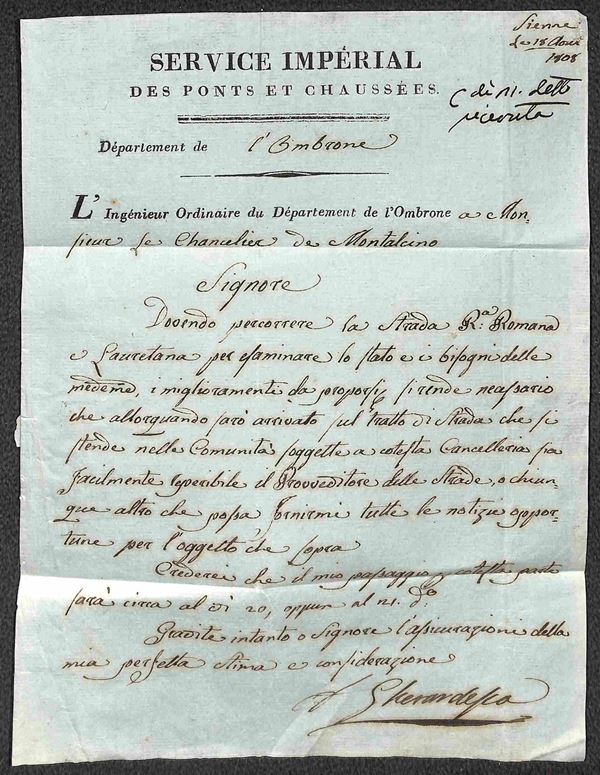 Sienne
le 18 Août
1808
SERVICE IMPÉRIAL
DES PONTS ET CHAUSSÉES.
di 21. detto
ricevuta
Département de l'Ombrone
L'Ingénieur Ordinaire du Département de l'Ombrone a Mon-
sieur Le Chancelier de Montalcino
Signore
Dovendo percorrere la Strada R.ª Romana
e Lauretana per esaminare lo stato e i bisogni delle
medeme, i miglioramenti da proporsi, si rende necessario
che allorquando sarò arrivato sul tratto di Strada che si
stende nelle Comunità soggette a cotesta Cancelleria sia
facilmente reperibile il Provveditore delle Strade, o chiun-
que altro che possa fornirmi tutte le notizie oppor-
tune per l'oggetto che sopra
Crederei che il mio passaggio cotesta parte
sarà circa al dì 20, oppure al 21. d.º
Gradite intanto o Signore l'assicurazione della
mia perfetta Stima e considerazione
Gherardesca